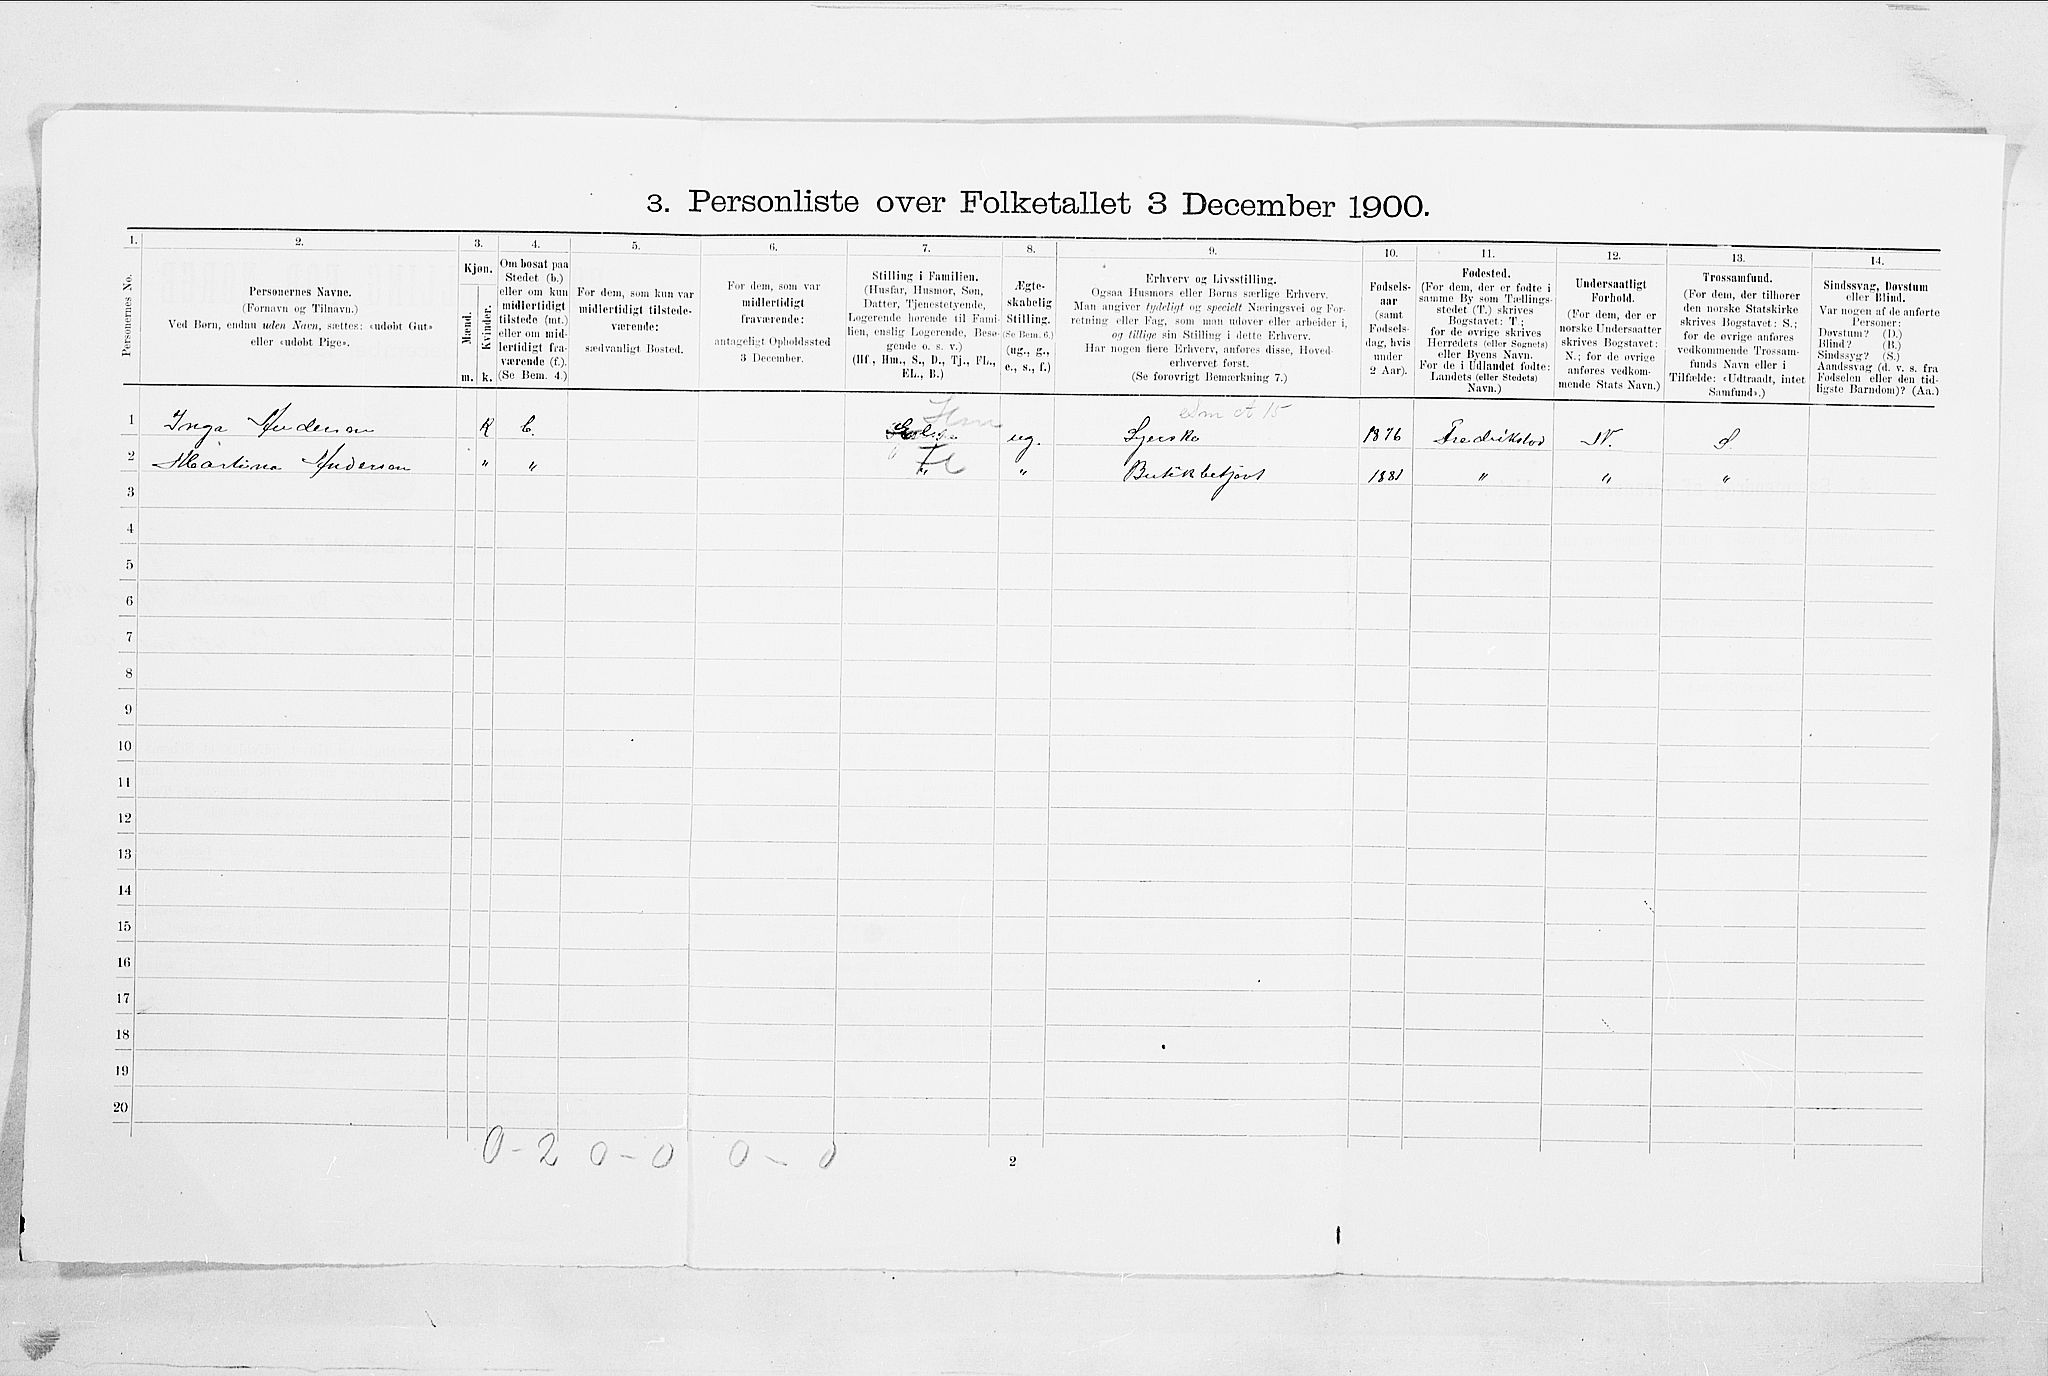 3. Personliste over Folketallet 3 December 1900.
1. 2. 3. 4. 5. 6. 7. 8. 9. 10. 11. 12. 13. 14.
Personernes No.
Personernes Navne.
(Fornavn og Tilnavn.)
Ved Børn, endnu uden Navn, sættes: «udøbt Gut»
eller «udøbt Pige».
Kjøn.
Mænd.
Kvinder.
m. k.
Om bosat paa
Stedet (b.)
eller om kun
midlertidigt
tilstede (mt.)
eller om mid-
lertidigt fra-
værende (f.).
(Se Bem. 4.)
For dem, som kun var
midlertidigt tilstede-
værende:
sædvanligt Bosted.
For dem, som var
midlertidigt
fraværende:
antageligt Opholdssted
3 December.
Stilling i Familien.
(Husfar, Husmor, Søn,
Datter, Tjenestetyende,
Logerende hørende til Fami-
lien, enslig Logerende, Besø-
gende o. s. v.)
(Hf., Hm., S., D., Tj., FL.,
EL., B.)
Ægte-
skabelig
Stilling.
(Se Bem. 6.)
(ug., g.,
e., s., f.)
Erhverv og Livsstilling.
Ogsaa Husmors eller Børns særlige Erhverv.
Man angiver tydeligt og specielt Næringsvei og For-
retning eller Fag, som man udøver eller arbeider i,
og tillige sin Stilling i dette Erhverv.
Har nogen flere Erhverv, anføres disse, Hoved-
erhvervet først.
(Se forøvrigt Bemærkning 7.)
Fødsels-
aar
(samt
Fødsels-
dag, hvis
under
2 Aar).
Fødested.
(For dem, der er fødte i
samme By som Tællings-
stedet (T.) skrives
Bogstavet: T.;
for de øvrige skrives
Herredets (eller Sognets)
eller Byens Navn.
For de i Udlandet fødte:
Landets (eller Stedets)
Navn.)
Undersaatligt
Forhold.
(For dem, der er
norske Undersaatter
skrives Bogstavet:
N.; for de øvrige
anføres vedkom-
mende Stats Navn.)
Trossamfund.
(For dem, der tilhører
den norske Statskirke
skrives Bogstavet: S.;
for de øvrige anføres
vedkommende Trossam-
funds Navn eller i
Tilfælde: «Udtraadt, intet
Samfund».)
Sindssvag, Døvstum
eller Blind.
Var nogen af de anførte
Personer:
Døvstum? (D.)
Blind? (B.)
Sindssyg? (S.)
Aandssvag (d. v. s. fra
Fødselen eller den tid-
ligste Barndom)? (Aa.)
Hm
1 Inga Anderson K b. ug. Syerske 1876 Fredrikstad N. S.
2 Martina Anderson " " " Fl " Butikbetjent 1881 " " "
3
4
5
6
7
8
9
10
11
12
13
14
15
16
17
18
19
20
0-2 0-0 0-0
2